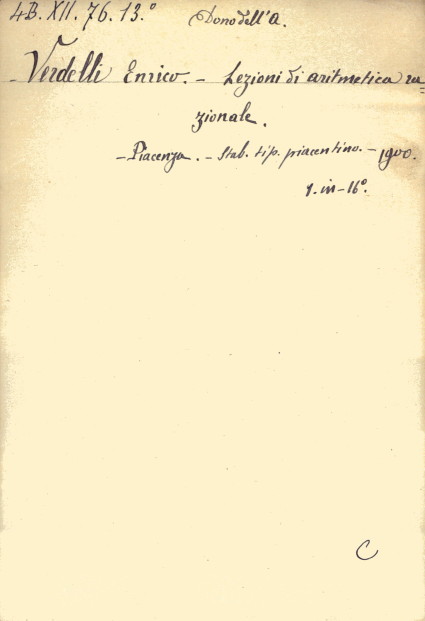 4B. XII. 76. 13.° Dono dell'A.
- Verdelli Enrico. - Lezioni di aritmetica ra=
zionale.
- Piacenza. - Stab. tip. piacentino. - 1900.
1. in-16°.
C